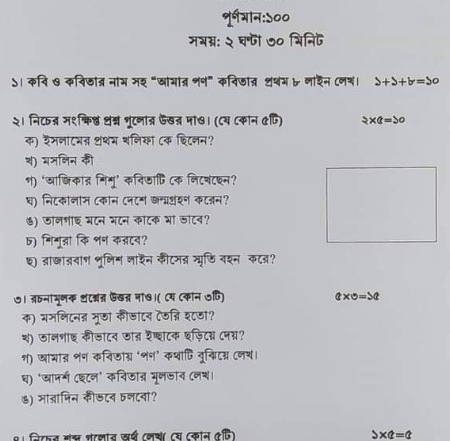 পূর্ণমান:১০০
সময়: ২ ঘণ্টা ৩০ মিনিট
১। কবি ও কবিতার নাম সহ “আমার পণ” কবিতার প্রথম ৮ লাইন লেখ। ১+১+৮=১০
২। নিচের সংক্ষিপ্ত প্রশ্ন গুলোর উত্তর দাও। (যে কোন ৫টি) ২×৫=১০
ক) ইসলামের প্রথম খলিফা কে ছিলেন?
খ) মসলিন কী
গ) ‘আজিকার শিশু’ কবিতাটি কে লিখেছেন?
ঘ) নিকোলাস কোন দেশে জন্মগ্রহণ করেন?
ঙ) তালগাছ মনে মনে কাকে মা ভাবে?
চ) শিশুরা কি পণ করবে?
ছ) রাজারবাগ পুলিশ লাইন কীসের স্মৃতি বহন করে?
৩। রচনামূলক প্রশ্নের উত্তর দাও।( যে কোন ৩টি) ৫×৩=১৫
ক) মসলিনের সুতা কীভাবে তৈরি হতো?
খ) তালগাছ কীভাবে তার ইচ্ছাকে ছড়িয়ে দেয়?
গ) আমার পণ কবিতায় ‘পণ’ কথাটি বুঝিয়ে লেখ।
ঘ) ‘আদর্শ ছেলে’ কবিতার মূলভাব লেখ।
ঙ) সারাদিন কীভবে চলবো?
৪। নিচের শব্দ গুলোর অর্থ লেখ( যে কোন ৫টি) ১×৫=৫